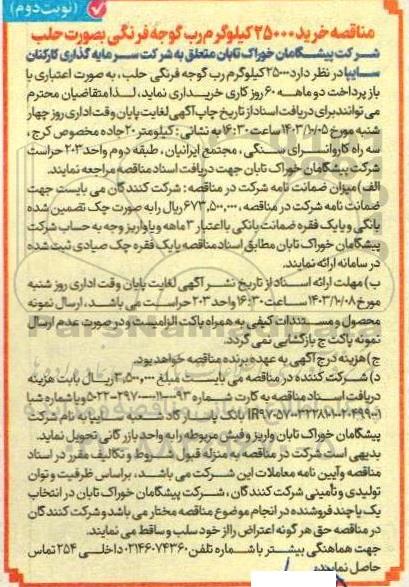 (نوبت دوم)
مناقصه خرید ۲۵۰۰۰ کیلوگرم رب گوجه فرنگی بصورت حلب
شرکت پیشگامان خوراک تابان متعلق به شرکت سرمایه گذاری کارکنان
سایپا در نظر دارد ۲۵۰۰۰ کیلوگرم رب گوجه فرنگی حلب، به صورت اعتباری با
باز پرداخت دو ماهه ۶۰ روز کاری خریداری نماید، لذا متقاضیان محترم
می توانند برای دریافت اسناد از تاریخ چاپ آگهی لغایت پایان وقت اداری روز چهار
شنبه مورخ ۱۴۰۳/۱۰/۰۵ ساعت ۱۶:۳۰ به نشانی: کیلومتر ۲۰ جاده مخصوص کرج،
سه راه کاروانسرای سنگی، مجتمع ایرانیان، طبقه دوم واحد ۲۰۳ حراست
شرکت پیشگامان خوراک تابان جهت دریافت اسناد مناقصه مراجعه نمایند.
الف) میزان ضمانت نامه شرکت در مناقصه: شرکت کنندگان می بایست جهت
ضمانت نامه شرکت در مناقصه، ۶۷۳,۵۰۰,۰۰۰ ریال را به صورت چک تضمین شده
بانکی و یا یک فقره ضمانت بانکی با اعتبار ۳ ماهه و یا واریز وجه به حساب شرکت
پیشگامان خوراک تابان مطابق اسناد مناقصه یا یک فقره چک صیادی ثبت شده
در سامانه ارائه نمایند.
ب) مهلت ارائه اسناد از تاریخ نشر آگهی لغایت پایان وقت اداری روز شنبه
مورخ ۱۴۰۳/۱۰/۰۸ ساعت ۱۶:۳۰ واحد ۲۰۳ حراست می باشد، ارسال نمونه
محصول و مستندات کیفی به همراه پاکت الزامیست و در صورت عدم ارسال
نمونه پاکت ج بازگشایی نمی گردد.
ج) هزینه درج آگهی به عهده برنده مناقصه خواهد بود.
د) شرکت کننده در مناقصه می بایست مبلغ ۳,۵۰۰,۰۰۰ ریال بابت هزینه
دریافت اسناد مناقصه به کارت شماره و یا شماره شبا
بانک پاسارگاد کارکنان سایپا به نام شرکت
پیشگامان خوراک تابان واریز و فیش مربوطه را به واحد بازرگانی تحویل نماید.
بدیهی است شرکت در مناقصه به منزله قبول شروط و تکالیف مقرر در اسناد
مناقصه و آیین نامه معاملات این شرکت می باشد، براساس ظرفیت و توان
تولیدی و تأمینی شرکت کنندگان، شرکت پیشگامان خوراک تابان در انتخاب
یک یا چند فروشنده در انجام موضوع مناقصه مختار می باشد و شرکت کنندگان
در مناقصه حق هر گونه اعتراض را از خود سلب و ساقط می نمایند.
جهت هماهنگی بیشتر با شماره تلفن ۰۲۱۴۶۰۷۴۳۶۰ داخلی ۲۵۴ تماس
حاصل نمایند.